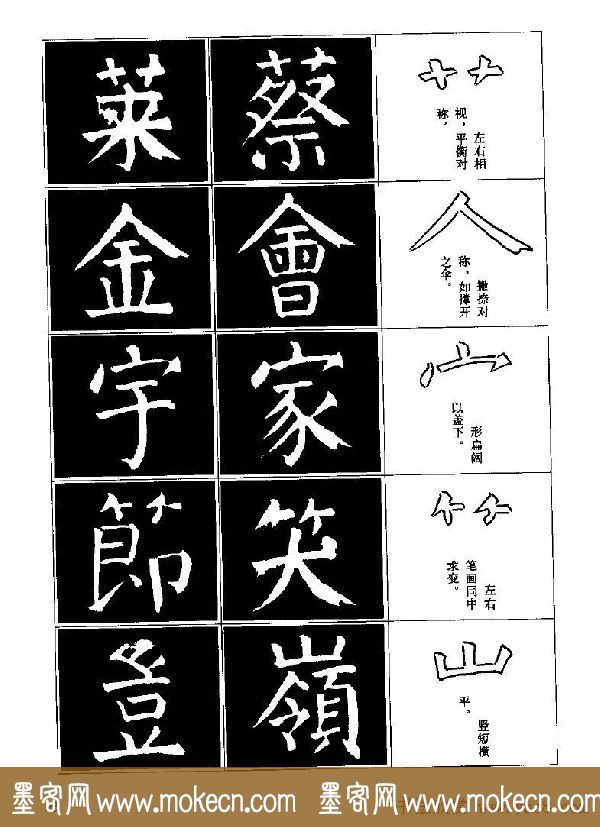 艹
左右相
视，平衡对
称。
蔡
萊
人
撇捺对
称，如撑开
之伞。
會
金
宀
形扁阔
以盖下。
家
宇
⺮
左右
笔画同中
求变。
笑
節
山
竖短横
平。
嶺
墨客网 www.mokecn.com 墨客网 www.mokecn.com